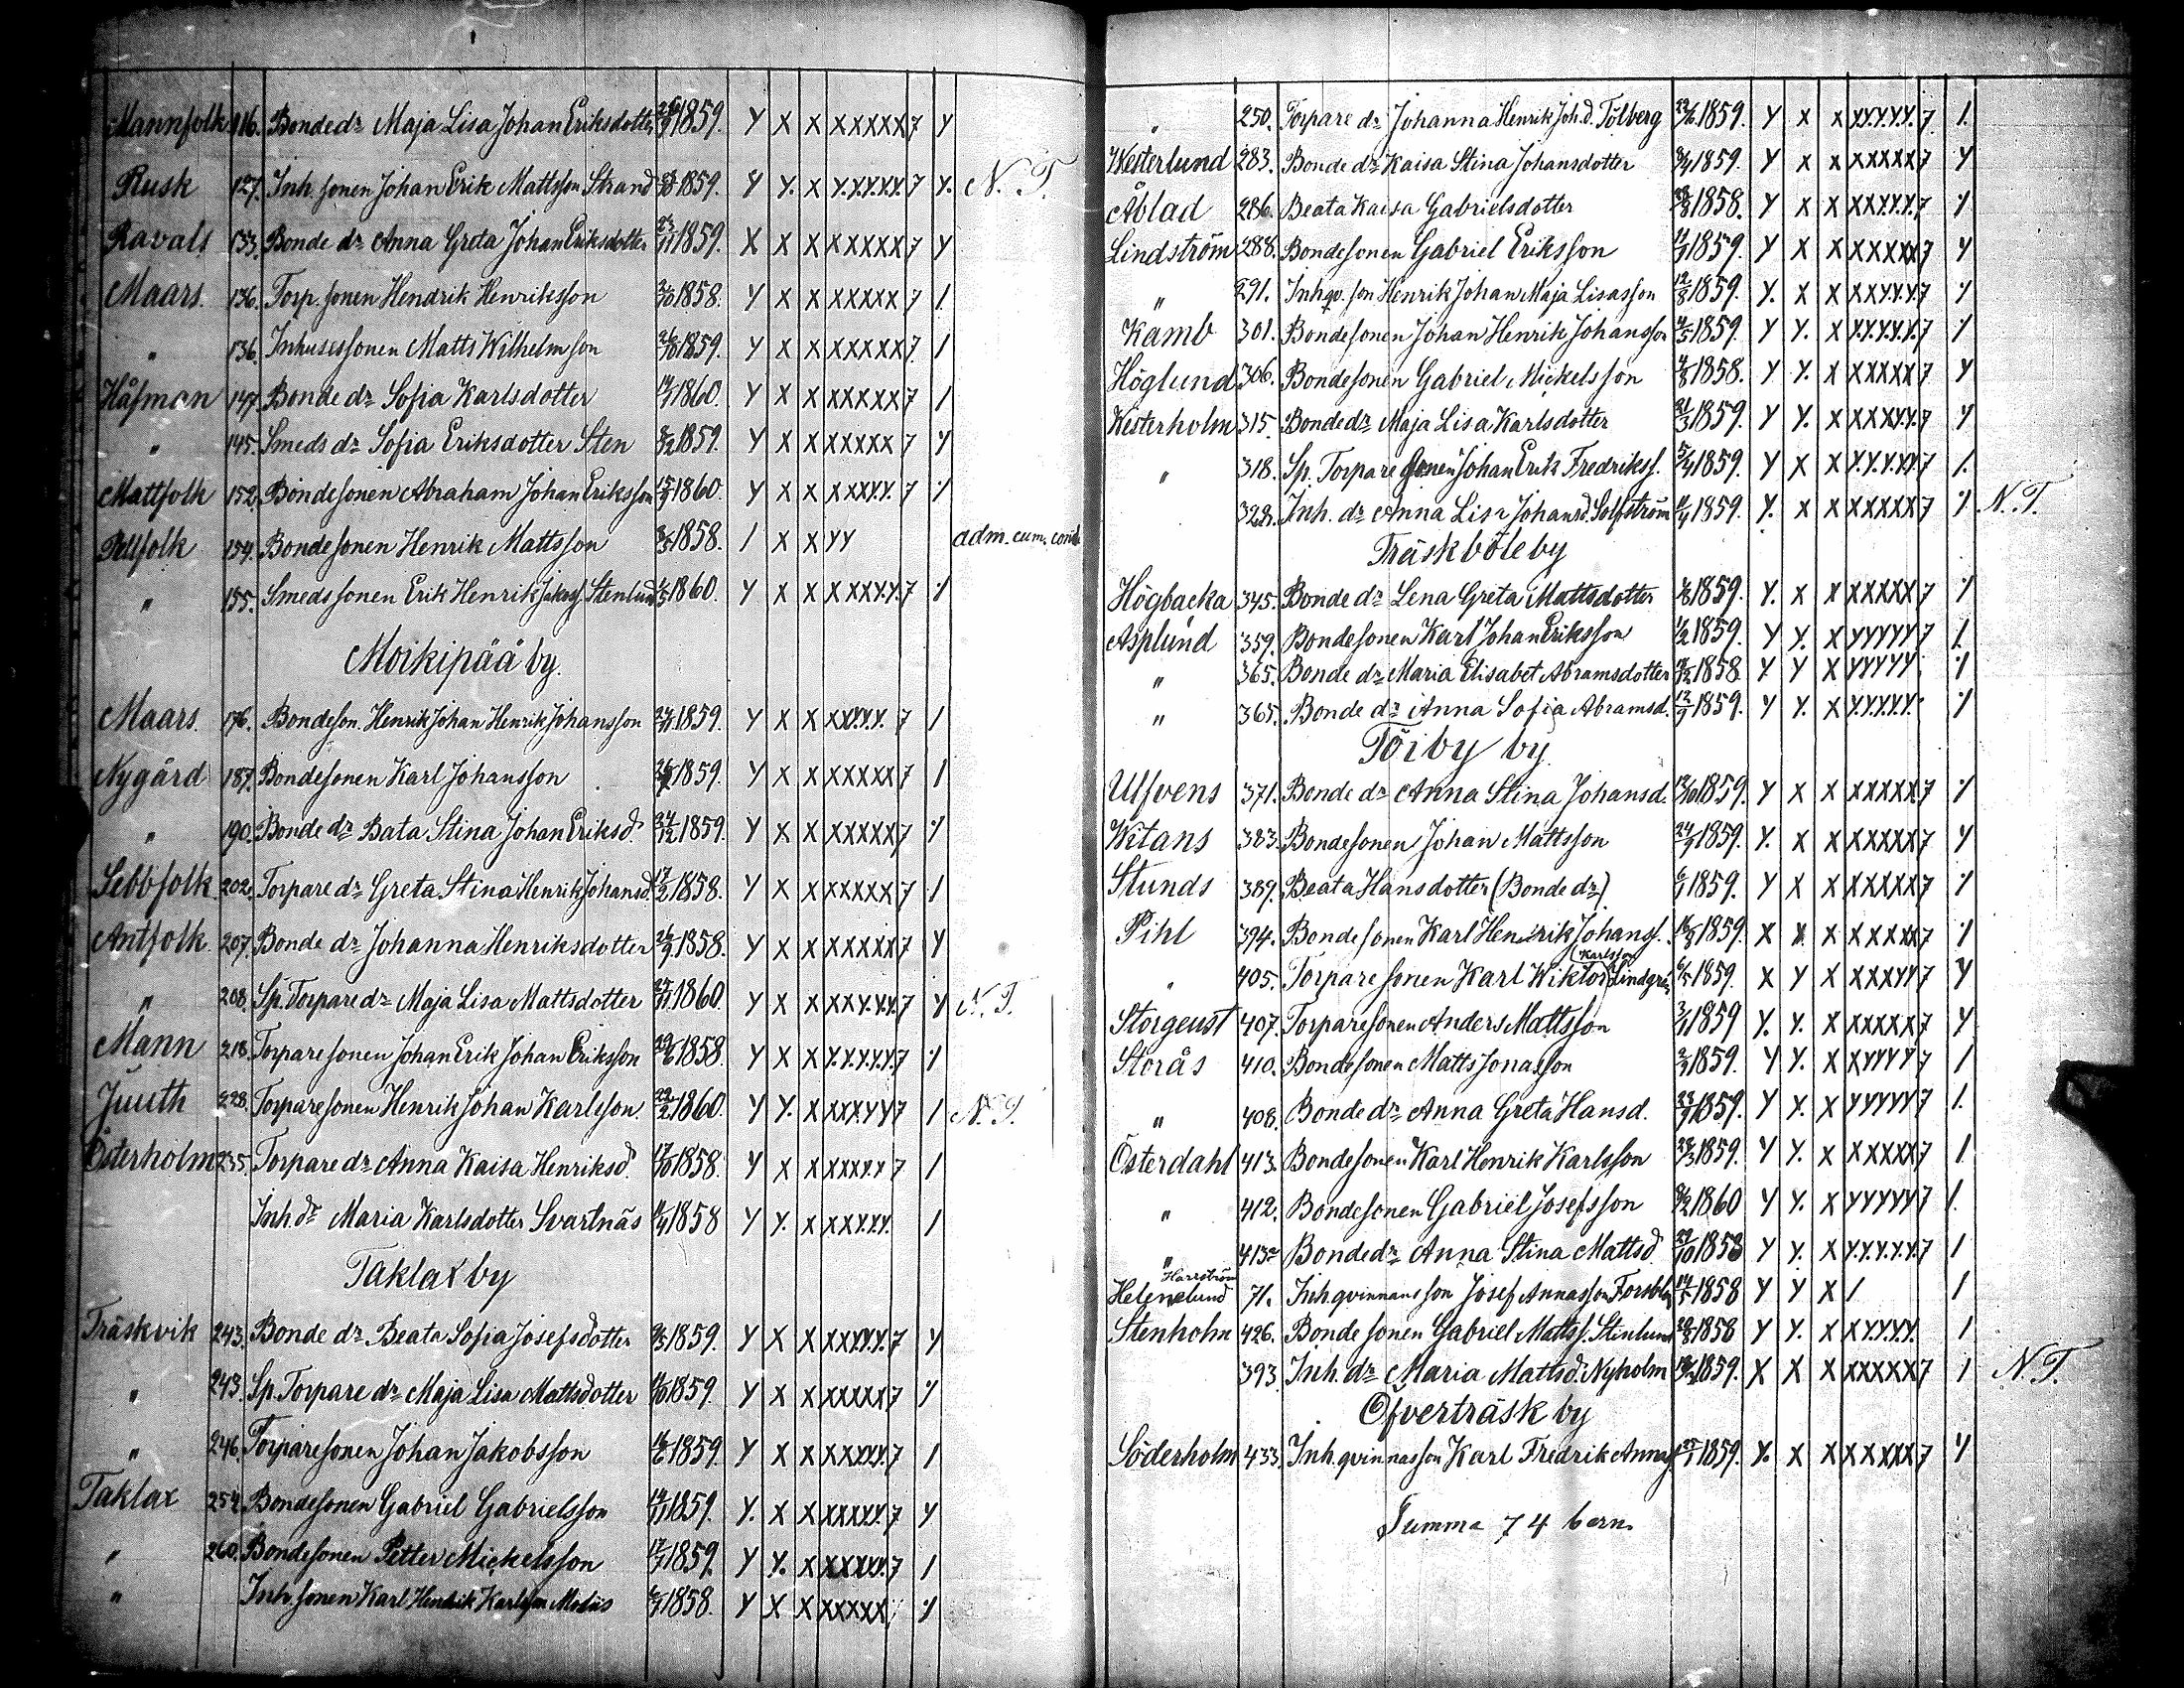 Mannfolk 116. Bonde dr Maja Lisa Johan Eriksdotter 1859. Y X X XXXXX 7 Y
Rusk 127. Inh. sonen Johan Erik Mattsson Strand 1859. Y Y. X Y.X.Y.Y.Y. 7 Y. N. T.
Ravals 133. Bonde dr Anna Greta Johan Eriksdotter 23/11 1859. X X X XXXXX 7 Y
Maars. 136. Torp. sonen Hendrik Henriksson 2/10 1858. Y X X XXXXX 7 /.
" 136. Inhusessonen Matts Wilhelmson 1859. Y X X XXXXX 7. /
Håfman 147. Bonde dr Sofia Karlsdotter 1860. Y X X XXXXX 7 /
" 145. Smeds dr Sofia Eriksdotter Sten 1859. Y X X XXXXX 7 Y
Mattfolk 152. Bondesonen Abraham Johan Eriksson 1860. Y X X XXXY.Y. 7 /
Pellfolk 154. Bondesonen Henrik Mattsson 1858. / X X YY adm. cum. cond.
" 155. Smedssonen Erik Henrik Jakossf. Stenlund 1860. Y X X XXXY.Y. 7 /
Moikipää by.
Maars. 176. Bondeson. Henrik Johan Henrik Johansson 1859. Y X X XXY.Y.Y. 7 /
Nygård 187. Bondesonen Karl Johansson 1859. Y X X XXXXX 7 /
" 190. Bonde dr Bata Stina Johan Eriksd. 24/12 1859. Y X X XXXXX 7 /
Sebbfolk. 202. Torpare dr Greta Stina Henrik Johansd. 17/2 1858. Y X X XXXXX 7 /
Antfolk. 207. Bonde dr Johanna Henriksdotter 26/9 1858. Y X X XXXXX 7 Y
" 208. Sp. Torpare dr Maja Lisa Mattsdotter 1860. Y X X XXY.Y.Y. 7 Y N. T.
Mann 218. Torparesonen Johan Erik Johan Eriksson 29/6 1858 Y X X Y.Y.Y.Y.Y. 7 /
Juuth 228. Torparesonen Henrik Johan Karlsson. 29/2 1860. Y Y. X XXXYY 7 / N. T.
Österholm 235. Torpare dr Anna Kaisa Henriksd. 17/10 1858. Y X X XXXY.Y 7 /
Inh. dr Maria Karlsdotter Svartnäs 1858 Y Y. X XXY.Y.Y. /
Taklax by
Träskvik 243. Bonde dr Beata Sofia Josefsdotter 1859. Y X X XXY.Y.Y. 7 Y
" 243. Sp. Torpare dr Maja Lisa Mattsdotter 1859. Y X X XXXXX 7 Y
" 246. Torparesonen Johan Jakobsson 1859. Y X X XXXY.Y. 7 /
Taklax 254. Bondesonen Gabriel Gabrielsson 14/11 1859. Y. X X XXXY.Y. 7 Y
" 260. Bondesonen Petter Mickelsson 17/7 1859. Y Y. X XXXY.Y. 7 /
" Inh. sonen Karl Hendrik Karlsson Modiis 1858. Y X X XXXXX /
" 250. Torpare dr Johanna Henrik Joh.d. Tölberg 1859. Y X X XY.Y.Y.Y. 7 /.
Westerlund 283. Bonde dr Kaisa Stina Johansdotter 1859. Y X X XXXXX 7 Y
Åblad 286. Beata Kaisa Gabrielsdotter 1858. Y X X XXY.Y.Y. 7 /
Lindström 288. Bondesonen Gabriel Eriksson 1859. Y X X XXXXX 7 Y
" 291. Inhqv. son Henrik Johan Maja Lisasson 12/8 1859. Y. X X XXY.Y.Y. 7 /
Kamb 301. Bondesonen Johan Henrik Johansson 1859. Y Y. X Y.Y.Y.Y.Y. 7 /
Höglund 306. Bondesonen Gabriel Mickelsson 1858. Y Y. X XXXXX 7 Y
Westerholm 315. Bonde dr Maja Lisa Karlsdotter 31/3 1859. Y Y. X XXXY.Y. 7 /
" 318. Sp. Torpare sonen Johan Erik Fredrikss. 1859. Y X X Y.Y.Y.Y.Y. 7 /.
328. Inh. dr Anna Lisa Johansd. Solfström 1859. Y. X X XXXXX 7 / N. T.
Träskböle by
Högbacka 345. Bonde dr Lena Greta Mattsdotter 1859. Y. X X XXXXX 7 /
Asplund 359. Bondesonen Karl Johan Eriksson 1859. Y Y. X YYYYY 7 /.
" 365. Bonde dr Maria Elisabet Abramsdotter 1858 Y Y X YYYYY. /
" 365. Bonde dr Anna Sofia Abramsd. 12/9 1859. Y Y. X Y.Y.Y.Y.Y. /
Töiby by.
Ulfvens 371. Bonde dr Anna Stina Johansd. 1859. Y X X XXXXX 7 /
Witans 383. Bondesonen Johan Mattsson 24/9 1859. Y. X X XXXXX 7 Y
Stunds 389. Beata Hansdotter (Bonde dr) 1859. Y X X XXXXX 7 /
Pihl 394. Bondesonen Karl Henrik Johanss. 16/8 1859. X X X XXXXX 7 /
" 405. Torpare sonen Karl Wiktor (Karlsson) Lindgren 1859. X Y X XXXYY 7 Y
Storgeust 407. Torparesonen Anders Mattsson 1859 Y. Y. X XXXXX 7 Y
Storås 410. Bondesonen Matts Jonasson 1859. Y Y. X XYYYY 7 /
" 408. Bonde dr Anna Greta Hansd. 23/9 1859. Y Y. X YYYYY 7 /.
Österdahl 413. Bondesonen Karl Henrik Karlsson 28/3 1859. Y Y. X XXXXX 7 /
" 412. Bondesonen Gabriel Josefsson 1860 Y Y. X YYYYY 7 /.
" 413. Bonde dr Anna Stina Mattsd 29/10 1858 Y Y. X Y.Y.Y.Y.Y. 7 /
Harrström
Helenelund 71. Inh. qvinnans son Josef Annasson Forsblom 14/5 1858 Y Y X / /
Stenholm 426. Bonde sonen Gabriel Mattss. Stenlund 1858 Y Y. X XY.Y.Y.Y. /
393. Inh. dr Maria Mattsd. Nyholm 1859. X X X XXXXX 7 / N. T.
Öfverträsk by
Söderholm 433. Inh. qvinnasson Karl Fredrik Annass. 1859. Y. X X XXXXX 7 Y
Summa 74 barn.